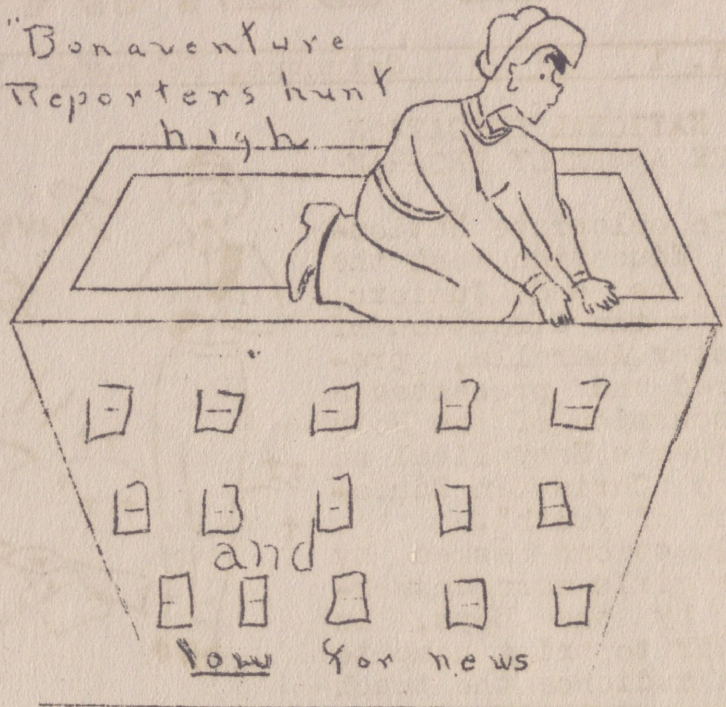 "Bonaventure
Reporters hunt
high
and
low for news